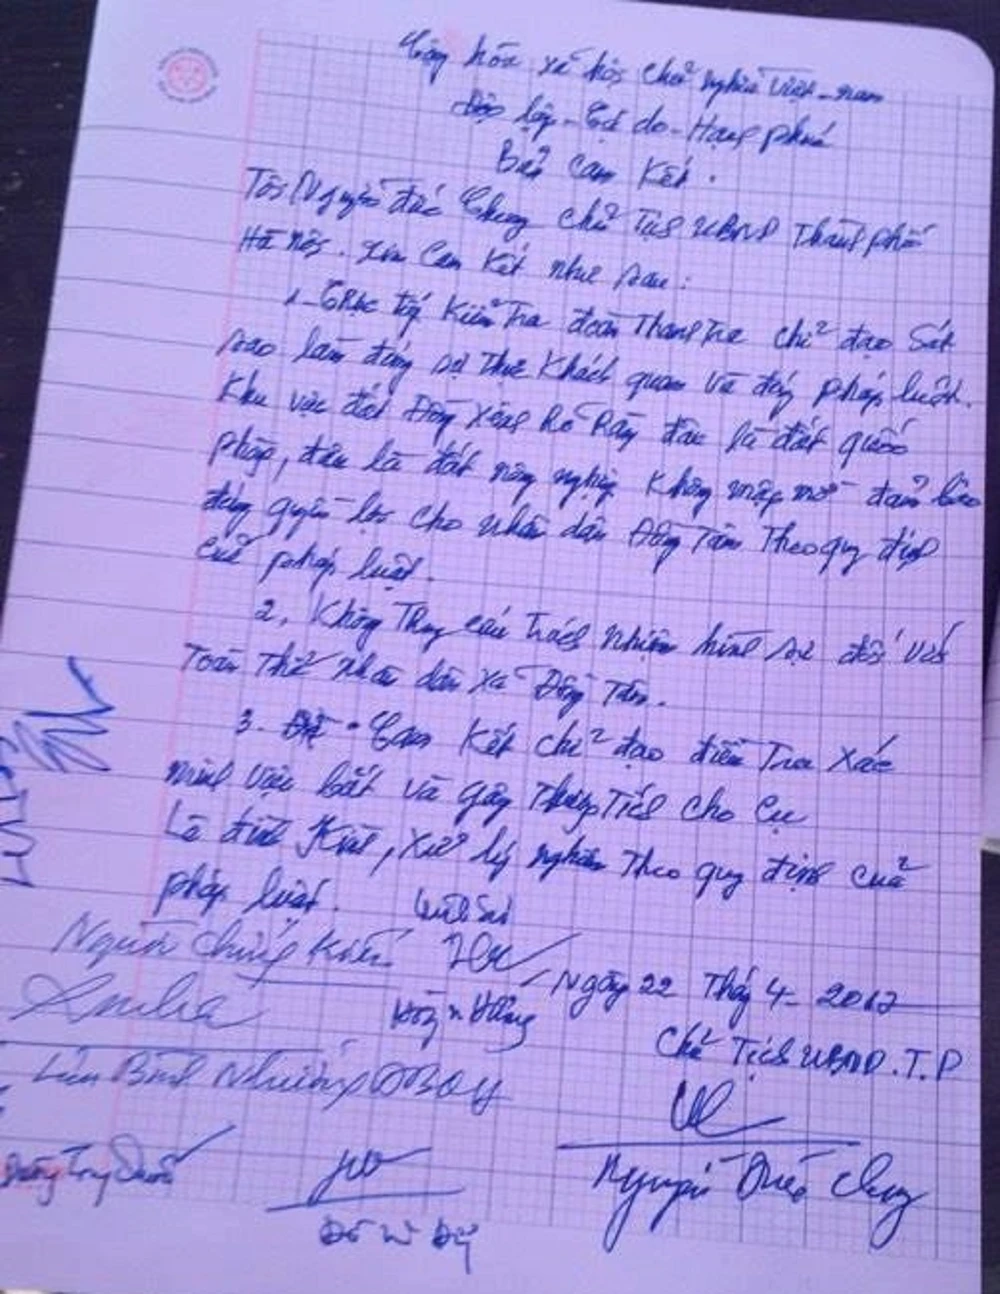 Cộng hòa xã hội chủ nghĩa Việt-nam
Độc lập - Tự do - Hạnh phúc
Bản Cam Kết.
Tôi Nguyễn Đức Chung Chủ Tịch UBND Thành phố
Hà Nội. Xin Cam Kết như sau:
1- Trực tiếp Kiểm Tra đoàn Thanh Tra chỉ đạo Sát
sao làm đúng sự Thực Khách quan và đúng pháp luật.
Khu vực đất Đồng Xênh Rõ Ràng đâu là đất quốc
phòng, đâu là đất nông nghiệp Không mập mờ đảm bảo
đúng quyền lợi cho nhân dân Đồng Tâm Theo quy định
của pháp luật.
2, Không Truy cứu Trách nhiệm hình sự đối với
Toàn Thể Nhân dân xã Đồng Tâm.
3. Cam Kết chỉ đạo điều Tra Xác
minh việc bắt và gây Thương Tích cho Cụ
Lê Đình Kình, Xử lý nghiêm Theo quy định của
pháp luật.
Người Chứng Kiến
Ngày 22 Tháng 4- 2017
Chủ Tịch UBND.T.P
Lưu Bình Nhưỡng ĐBQH
Nguyễn Đức Chung
Dương Trung Quốc
Đỗ V Đ